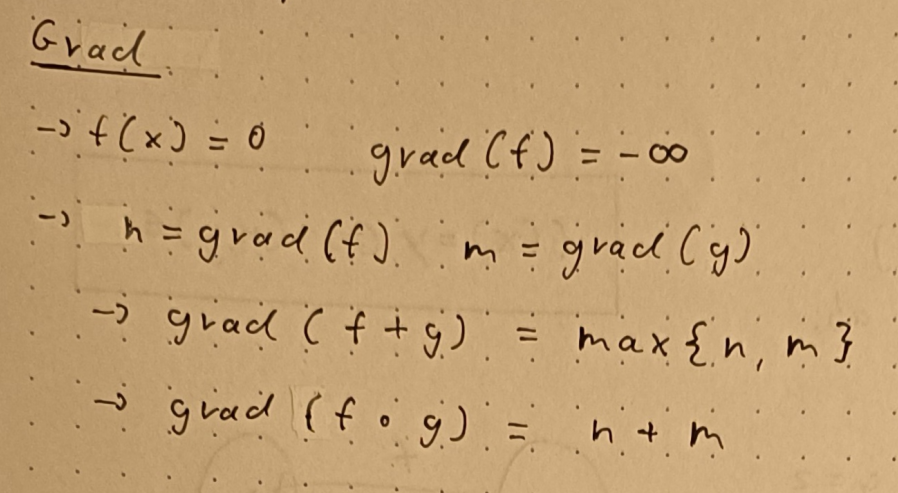 Grad
→ f(x) = 0 grad (f) = -∞
→ n = grad (f) m = grad (g)
→ grad (f + g) = max{n, m}
→ grad (f ∘ g) = n + m